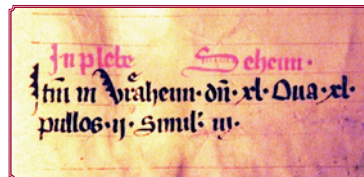 In plebe Seheim·
Itm̄ in Vraheim· dn̄· xl· Oua· xl·
pullos· ij· Simil· iij·